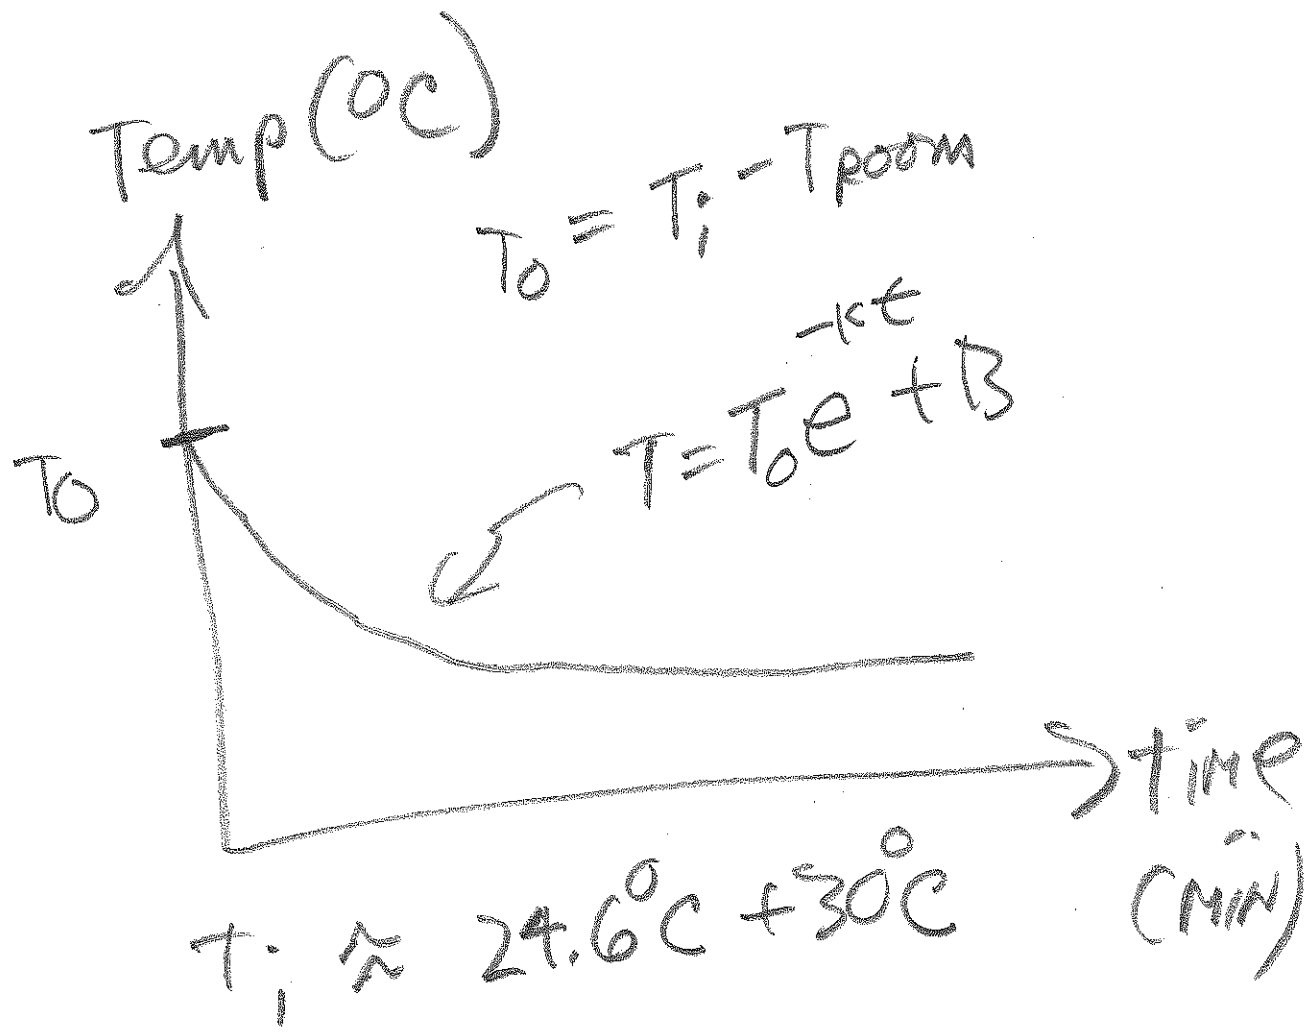 Temp (°C)
T₀ = Tᵢ - Troom
T = T₀e^-kt + B
T₀
time
(min)
Tᵢ ≈ 24.6°C + 30°C